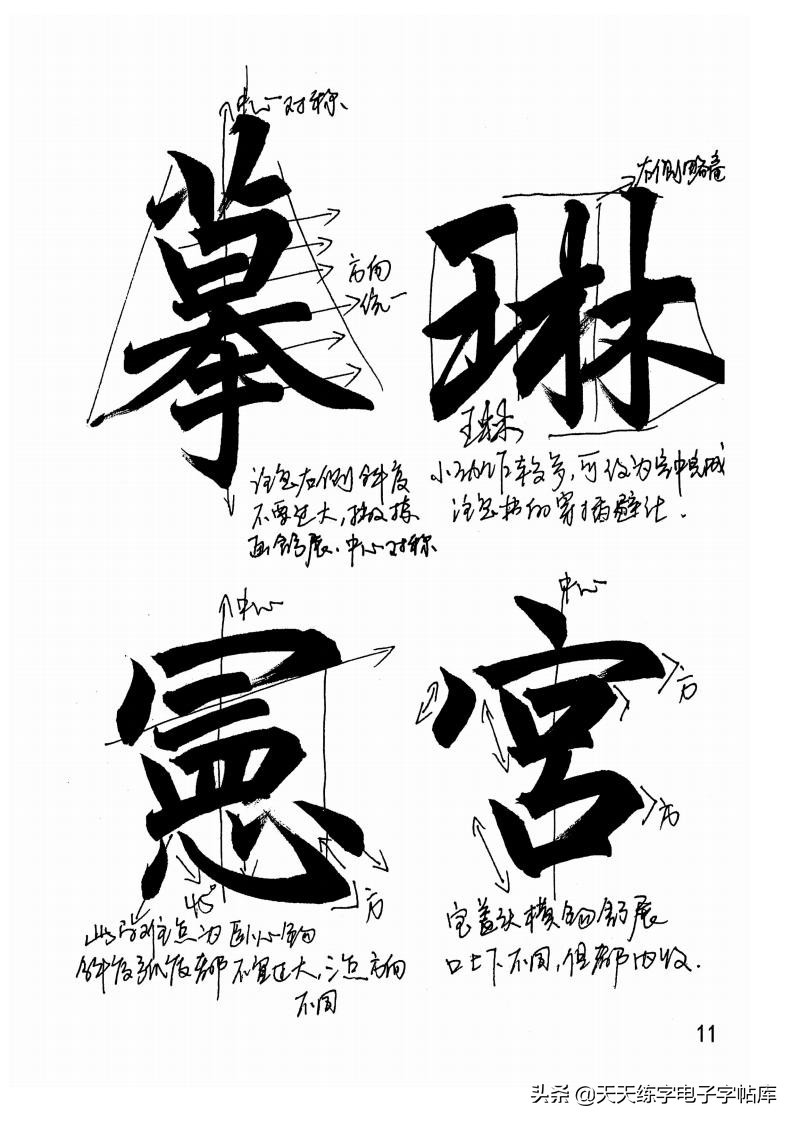 中心对称
摹
方向
统一
注意右侧斜度
不要过大,撇捺
画舒展、中心对称
右侧略高
琳
琳
小动作较多,可
注意 的穿插避让.
中心
憲
45°
方
此字难点为卧心钩
斜度弧度都不宜过大,三点方向
不同
中心
宮
方
方
宝盖头横钩舒展
口上下不同,但都内收.
11
头条 @天天练字电子字帖库